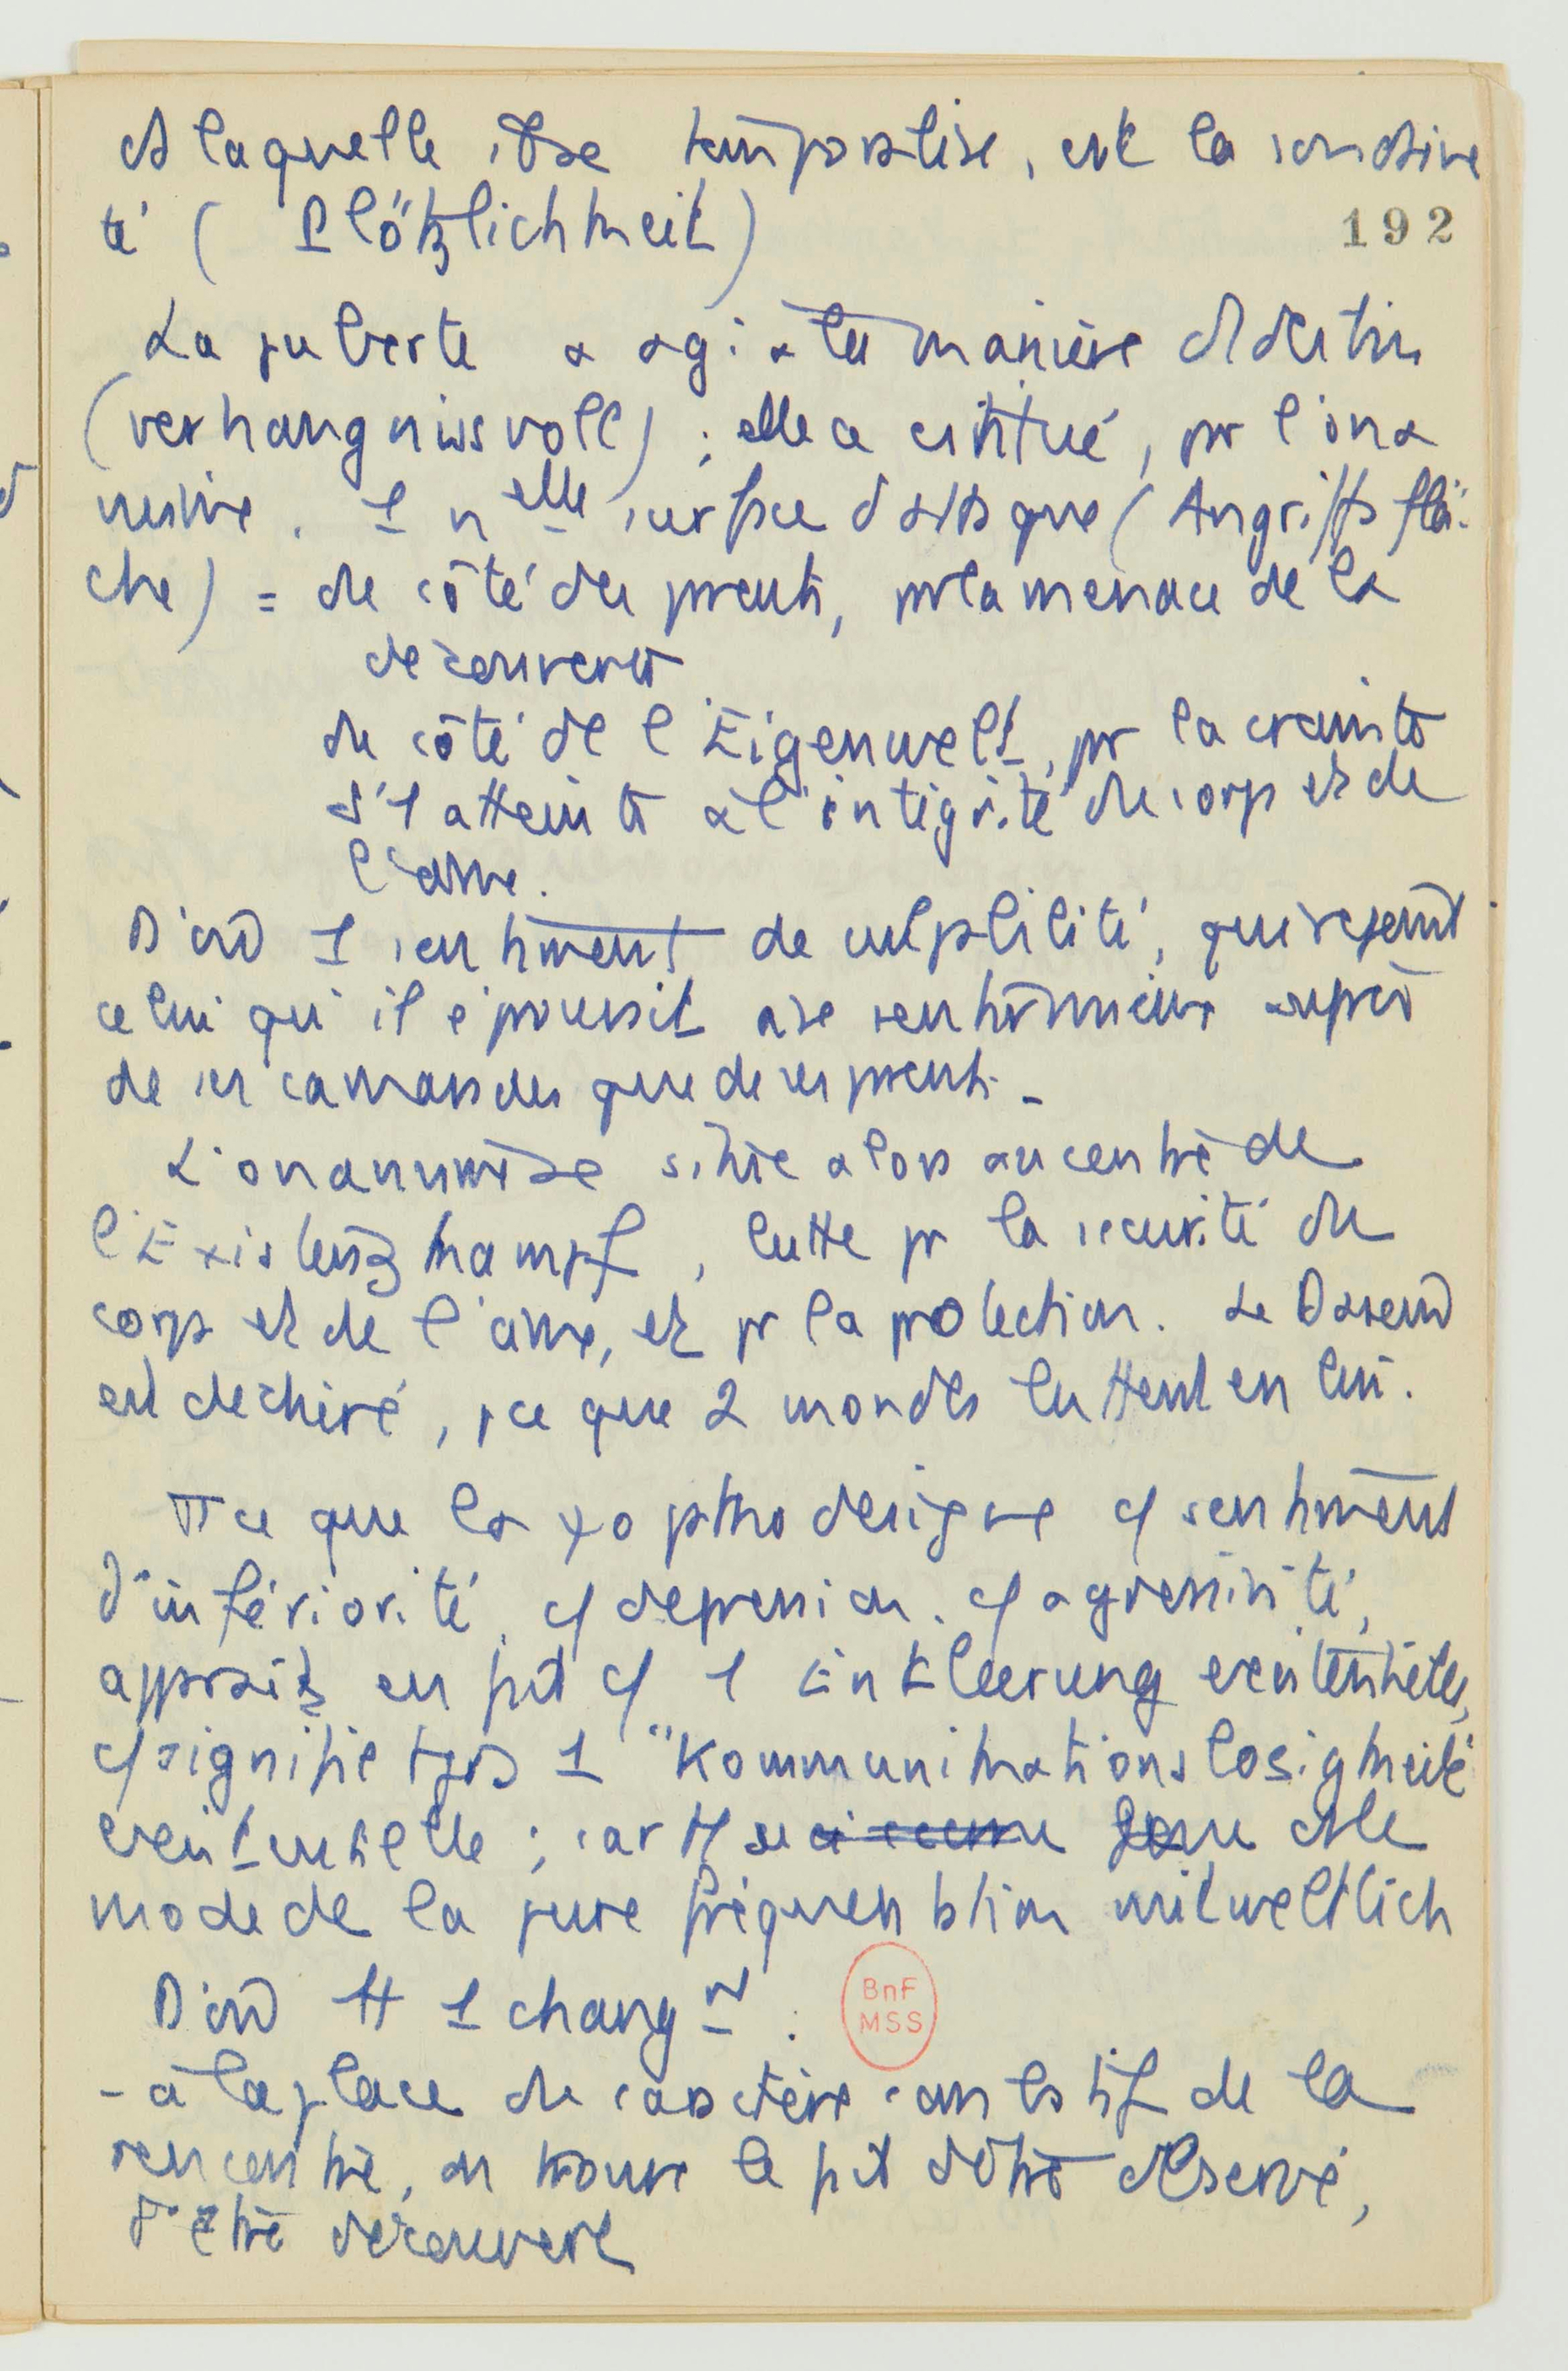 et laquelle il se temporalise, est la soudaine
té (Plötzlichkeit)
192
La puberté a agi à la manière d'1 destin
(verhängnissvoll) ; elle a cstitué, pr l'ona
nisme, 1 nelle surface d'attaque (Angriffsflä-
che) = du côté des parents, pr la menace de la
découverte
du côté de l'Eigenwelt, pr la crainte
d'1 atteinte à l'intégrité du corps et de
l'âme.
D'où 1 sentiment de culpabilité, qui
celui qu'il éprouvait à se sentir mieux auprès
de ses camarades que de ses parents.
L'onanisme se situe alors au centre de
l'Existenzkampf, lutte pr la sécurité du
corps et de l'âme, et pr la protection. Le Dasein
est déchiré, pce que 2 mondes luttent en lui.
Tt ce que la ψopatho désigne c/ sentiment
d'infériorité, c/ dépression, c/ agressivité,
apparaît en fait c/ 1 Entleerung existentielle,
c/ signifie tjrs 1 "Kommunikationslosigkeit"
existentielle ; car tt se ds le
mode de la pure fréquentation mitweltlich
D'où tt 1 changnt :
BnF
MSS
- à la place du caractère de la
rencontre, on trouve le fait d'être observé,
d'être découvert